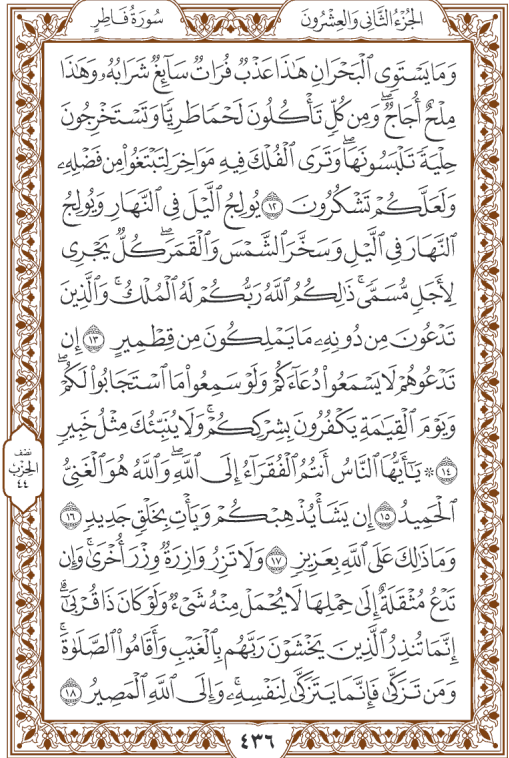 الجزء الثاني والعشرون
سورة فاطر
وَمَا يَسْتَوِي ٱلْبَحْرَانِ هَٰذَا عَذْبٌ فُرَاتٌ سَآئِغٌ شَرَابُهُۥ وَهَٰذَا
مِلْحٌ أُجَاجٌۖ وَمِن كُلٍّ تَأْكُلُونَ لَحْمًا طَرِيًّا وَتَسْتَخْرِجُونَ
حِلْيَةً تَلْبَسُونَهَاۖ وَتَرَى ٱلْفُلْكَ فِيهِ مَوَاخِرَ لِتَبْتَغُوا۟ مِن فَضْلِهِۦ
وَلَعَلَّكُمْ تَشْكُرُونَ ١٢ يُولِجُ ٱلَّيْلَ فِي ٱلنَّهَارِ وَيُولِجُ
ٱلنَّهَارَ فِي ٱلَّيْلِ وَسَخَّرَ ٱلشَّمْسَ وَٱلْقَمَرَۖ كُلٌّ يَجْرِي
لِأَجَلٍ مُّسَمًّىۚ ذَٰلِكُمُ ٱللَّهُ رَبُّكُمْ لَهُ ٱلْمُلْكُۚ وَٱلَّذِينَ
تَدْعُونَ مِن دُونِهِۦ مَا يَمْلِكُونَ مِن قِطْمِيرٍ ١٣ إِن
تَدْعُوهُمْ لَا يَسْمَعُوا۟ دُعَآءَكُمْ وَلَوْ سَمِعُوا۟ مَا ٱسْتَجَابُوا۟ لَكُمْۖ
وَيَوْمَ ٱلْقِيَٰمَةِ يَكْفُرُونَ بِشِرْكِكُمْۚ وَلَا يُنَبِّئُكَ مِثْلُ خَبِيرٍ
١٤ ۞ يَٰٓأَيُّهَا ٱلنَّاسُ أَنتُمُ ٱلْفُقَرَآءُ إِلَى ٱللَّهِۖ وَٱللَّهُ هُوَ ٱلْغَنِيُّ
ٱلْحَمِيدُ ١٥ إِن يَشَأْ يُذْهِبْكُمْ وَيَأْتِ بِخَلْقٍ جَدِيدٍ ١٦
وَمَا ذَٰلِكَ عَلَى ٱللَّهِ بِعَزِيزٍ ١٧ وَلَا تَزِرُ وَازِرَةٌ وِزْرَ أُخْرَىٰۚ وَإِن
تَدْعُ مُثْقَلَةٌ إِلَىٰ حِمْلِهَا لَا يُحْمَلْ مِنْهُ شَيْءٌ وَلَوْ كَانَ ذَا قُرْبَىٰٓۗ
إِنَّمَا تُنذِرُ ٱلَّذِينَ يَخْشَوْنَ رَبَّهُم بِٱلْغَيْبِ وَأَقَامُوا۟ ٱلصَّلَوٰةَۚ
وَمَن تَزَكَّىٰ فَإِنَّمَا يَتَزَكَّىٰ لِنَفْسِهِۦۚ وَإِلَى ٱللَّهِ ٱلْمَصِيرُ ١٨
نصف
الحزب
٤٤
٤٣٦